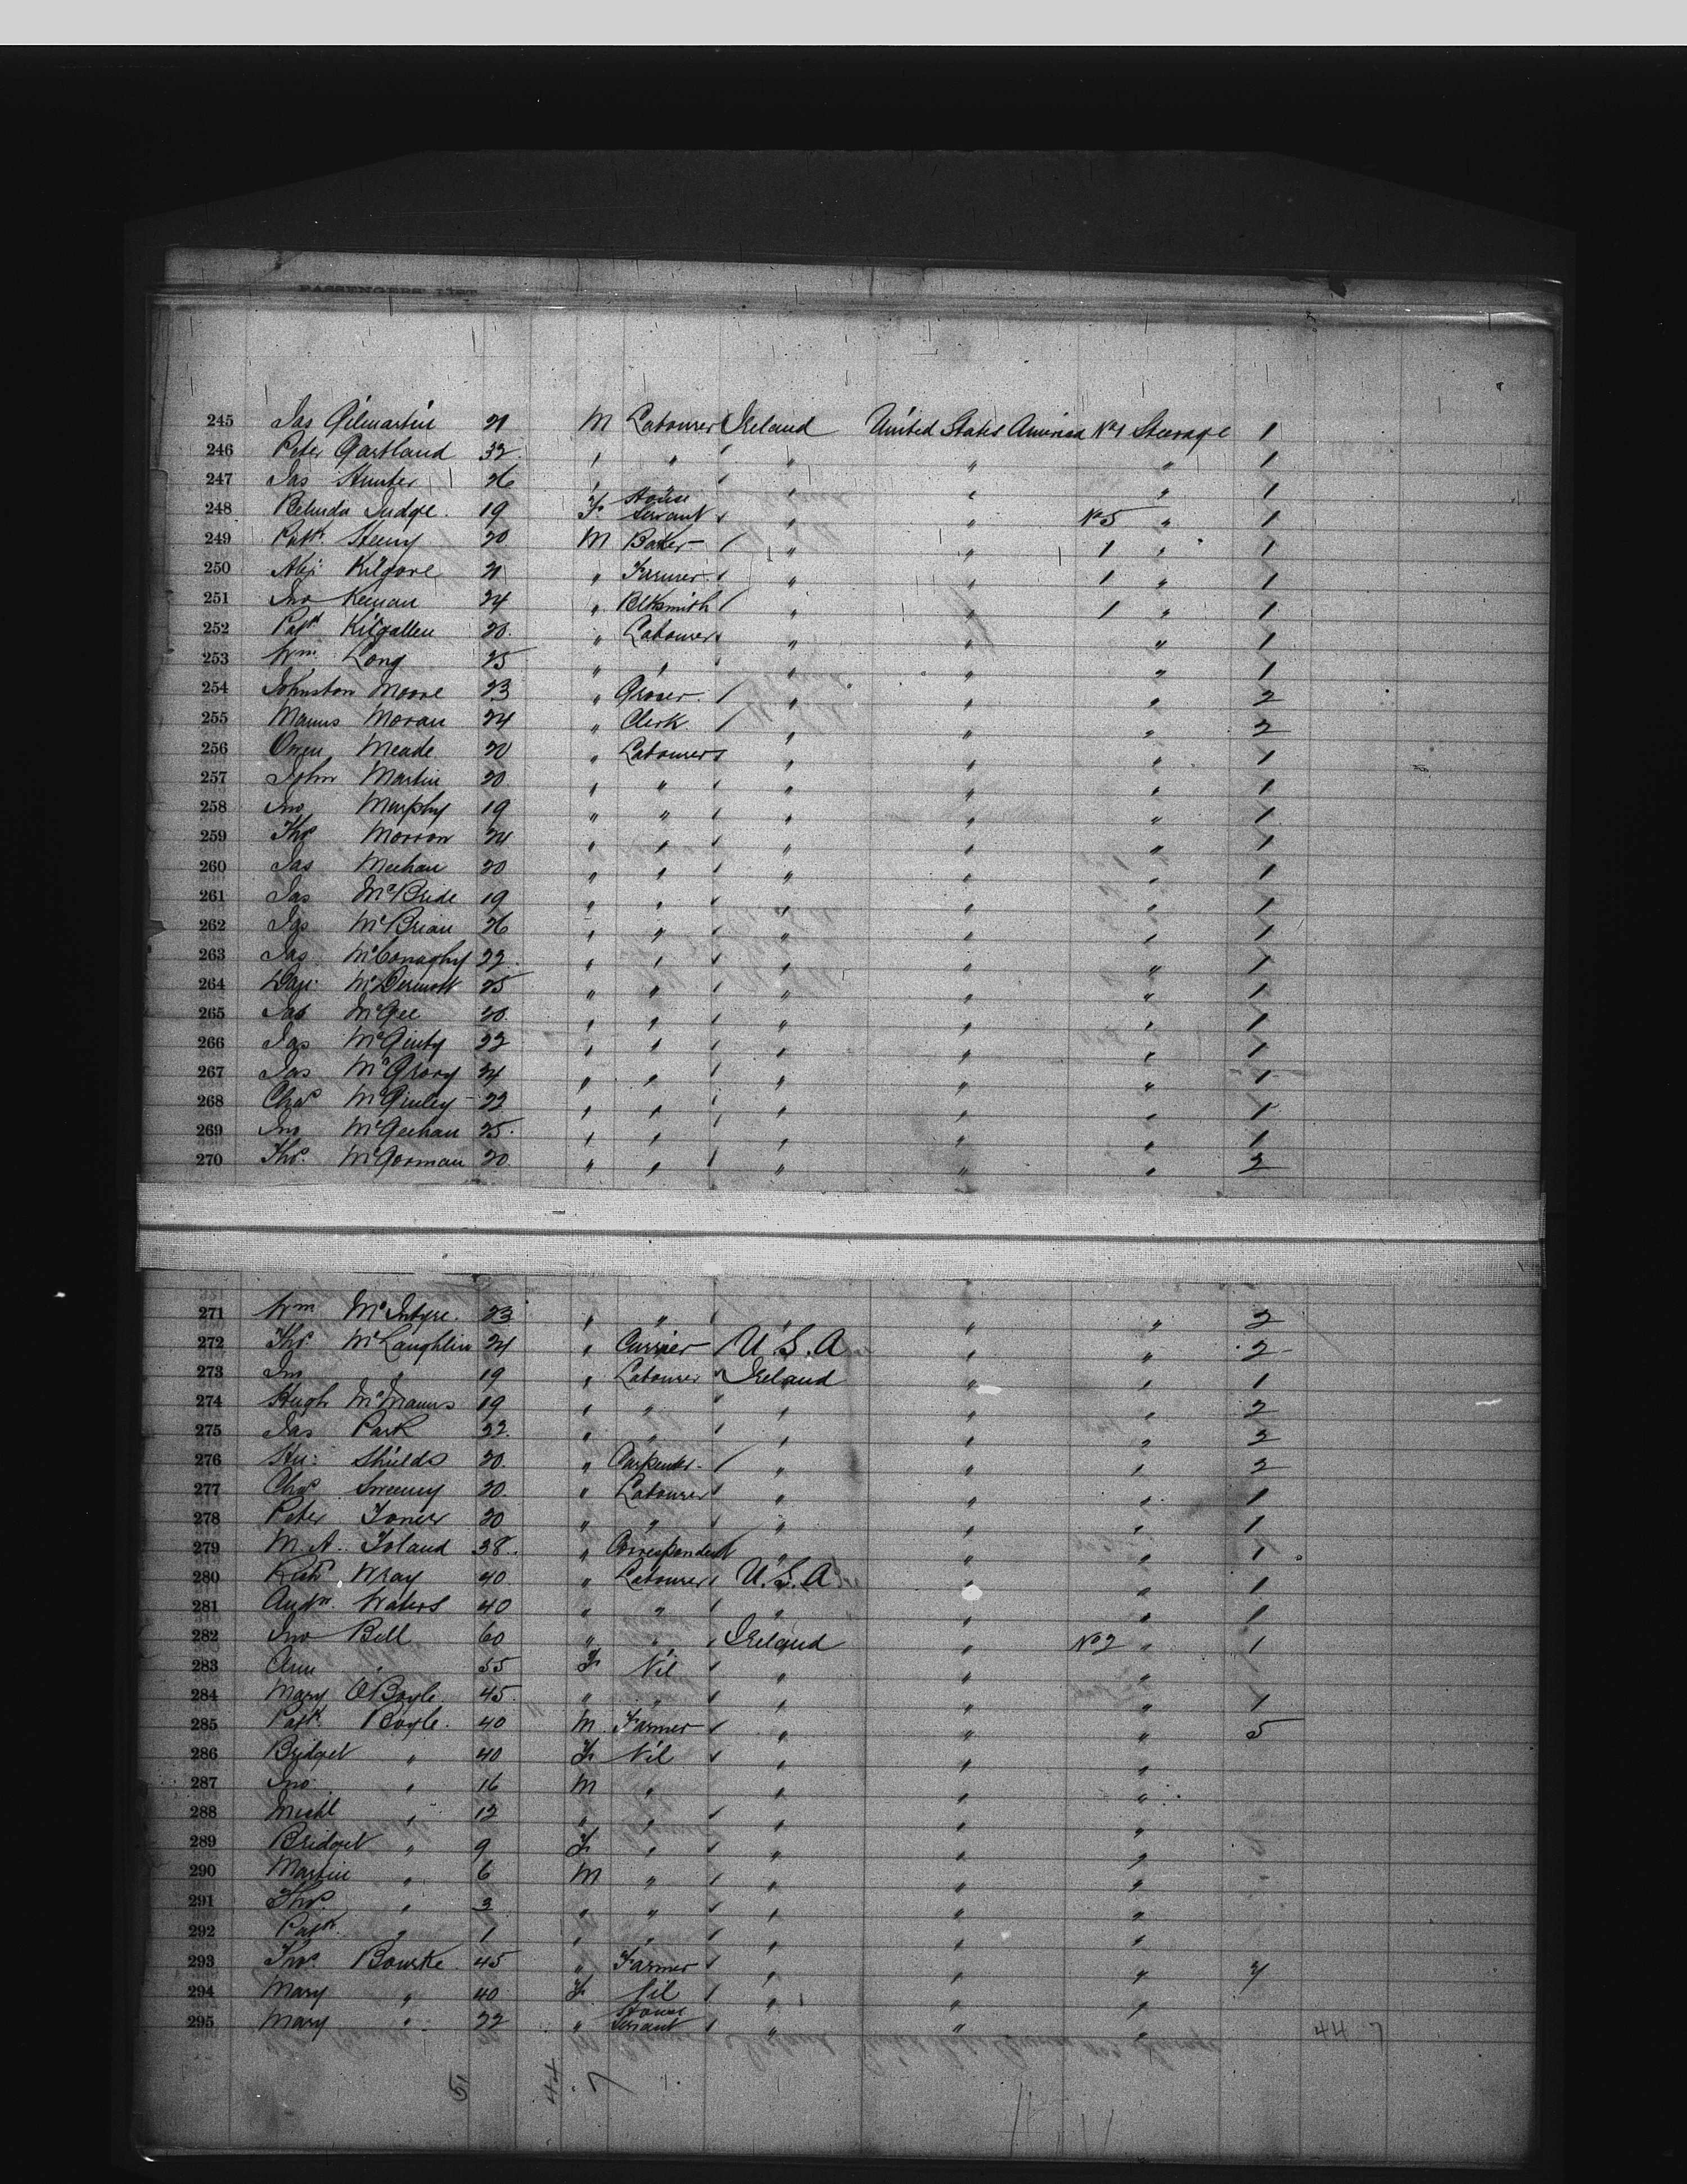 PASSENGERS' LIST
245 Jas Gilmartin 21 M Labourer Ireland United States America No 1 Steerage 1
246 Peter Gartland 32 " " " " " 1
247 Jas Hunter 26 " " " " 1
248 Belinda Judge 19 F House Servant " " No 5 " 1
249 Patk 20 M Baker " " 1 " 1
250 Kilgore 21 " Farmer " " 1 " 1
251 Jno Keenan 24 " Blksmith " " 1 " 1
252 Patk Kilgallen 20 " Labourer " " " 1
253 Wm Long 25 " " " " " 1
254 Johnston Moore 23 " Grocer " " " 2
255 Manus Moran 24 " Clerk " " " 2
256 Owen Meade 20 " Labourer " " " 1
257 John Martin 20 " " " " " 1
258 Jno Murphy 19 " " " " " 1
259 Thos Morron 24 " " " " " 1
260 Jas Meehan 20 " " " " " 1
261 Jas McBride 19 " " " " " 1
262 Jas McBrian 26 " " " " " 1
263 Jas McConaghy 22 " " " " " 1
264 Danl McDermott 25 " " " " " 1
265 Jas McGee 20 " " " " " 1
266 Jas McGinty 22 " " " " " 1
267 Jas McGrory 24 " " " " " 1
268 Chas McGinley 22 " " " " " 1
269 Jno McGeehan 25 " " " " " 1
270 Thos McGorman 20 " " " " " 2
271 Wm McIntyre 23 " " " " " 2
272 Thos McLaughlin 24 " Currier U.S.A " " 2
273 Jno " 19 " Labourer Ireland " " 1
274 Hugh McManus 19 " " " " " 2
275 Jas Park 22 " " " " " 2
276 Shields 20 " Carpenter " " " 2
277 Chas Sweeney 20 " Labourer " " " 1
278 Peter Toner 20 " " " " " 1
279 M A Toland 38 " Correspondent " " " 1
280 Richd Wray 40 " Labourer U.S.A " " 1
281 Andw Waters 40 " " " " " 1
282 Jno Bell 60 " " Ireland " No 2 " 1
283 Ann " 55 F Nil " " "
284 Mary O'Boyle 45 " " " " " 1
285 Patk Boyle 40 M Farmer " " " 5
286 Bridget " 40 F Nil " " "
287 Jno " 16 M " " " "
288 Michl " 12 " " " " "
289 Bridget " 9 F " " " "
290 Martin " 6 M " " " "
291 Thos " 3 " " " " "
292 Patk " 1 " " " " "
293 Thos Bourke 45 " Farmer " " "
294 Mary " 40 F Nil " " "
295 Mary " 22 " House Servant " " " 44 7
51 44 . 7